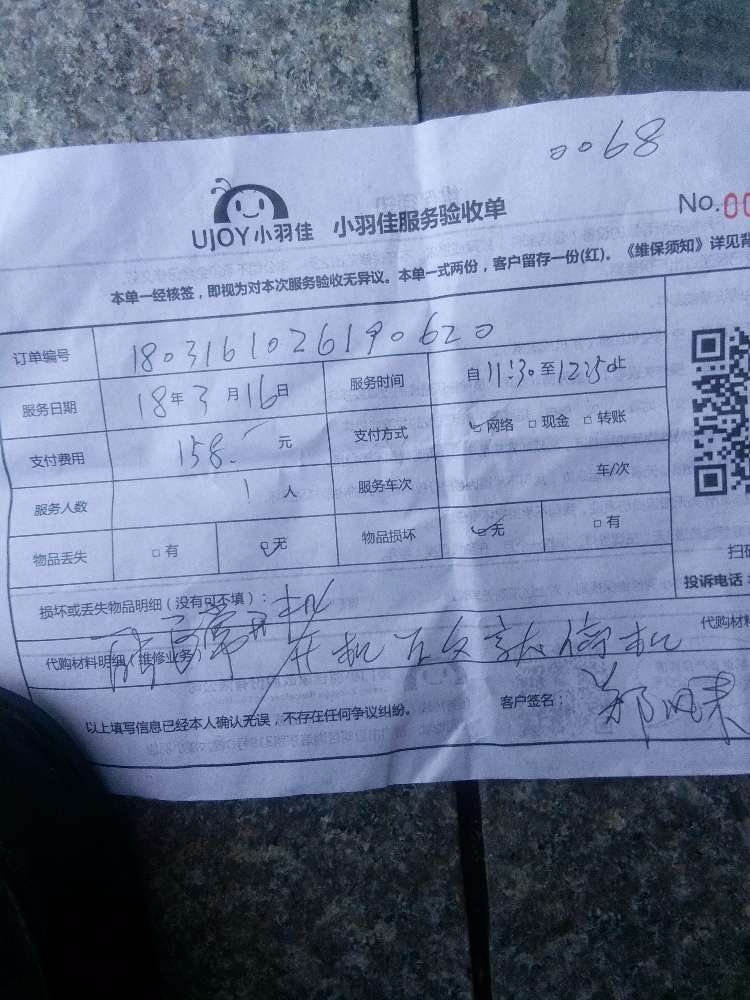 0068
UJOY小羽佳 小羽佳服务验收单 No.00
本单一经核签，即视为对本次服务验收无异议。本单一式两份，客户留存一份(红)。《维保须知》详见背
订单编号 1803161026190620
服务日期 18年3月16日 服务时间 自11:30至12:50止
支付费用 158.- 元 支付方式 ☑网络 □现金 □转账
服务人数 1人 服务车次 车/次
物品丢失 □有 ☑无 物品损坏 ☑无 □有
扫码
投诉电话：
损坏或丢失物品明细（没有可不填）：
代购材料明细（维修业务） 开机 就停机 代购材料
以上填写信息已经本人确认无误，不存在任何争议纠纷。 客户签名： 郑